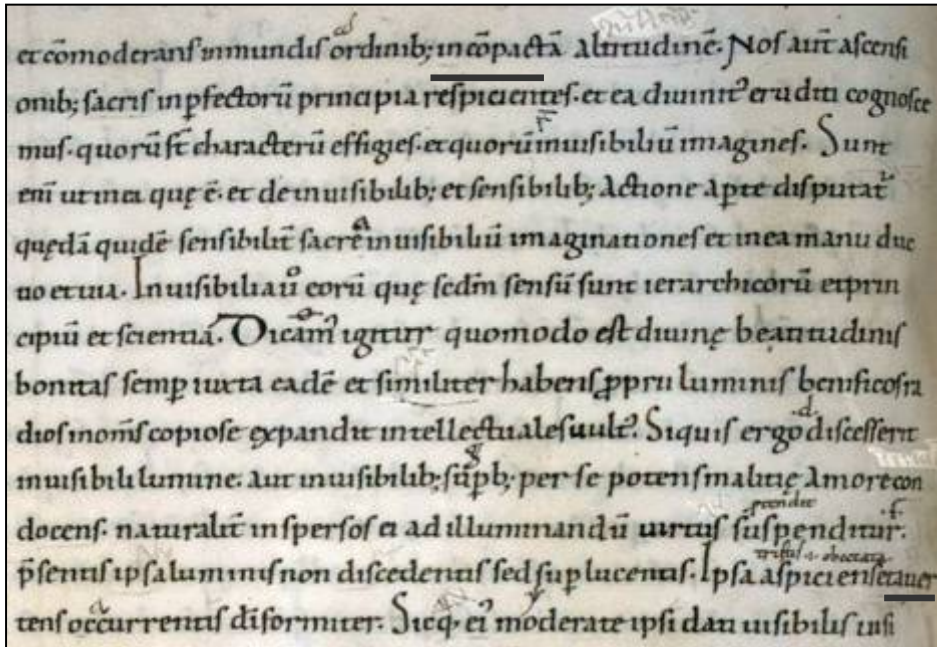 et cōmoderans inmundis ordinib; incōpactā altitudinē. Nos aut̄ ascensi
onib; sacris inp̱fectorū principia respicientes. et ea diuinit᾽ eruditi cognosce
mus. quorū st̄ characterū effigies. et quorū inuisibiliū imagines. Sunt
eni ut inea quę ē. et de inuisibilib; et sensibilib; actione aperte disputat᾽
quędā quidē sensibilit̄ sacrē inuisibiliū imaginationes et inea manu duc
tio et uia. Inuisibilia ū eorū quę scdm̄ sensū sunt ierarchicorū et prin
cipiū et scientiā. Dicam᾽ igitur quomodo est diuinę beatitudinis
bonitas semp̱ iuxta eadē et similiter habens ꝓprii luminis benificos ra
dios inom̄s copiose expandit intellectuales uult᾽. Siquis ergo discesserit
inuisibili lumine. aut inuisibilib; sup̱b; per se potens malitię amore con
docens. naturalit̄ inspersos ei ad illuminandū uirtus suspenditur.
p̄sentis ipsa luminis non discedentis sed sup̱ lucentis. Ipsa aspiciens et auer
tens occurrentis dīformiter. Sicq. ei᾽ moderate ipsi dati uisibilis uisi